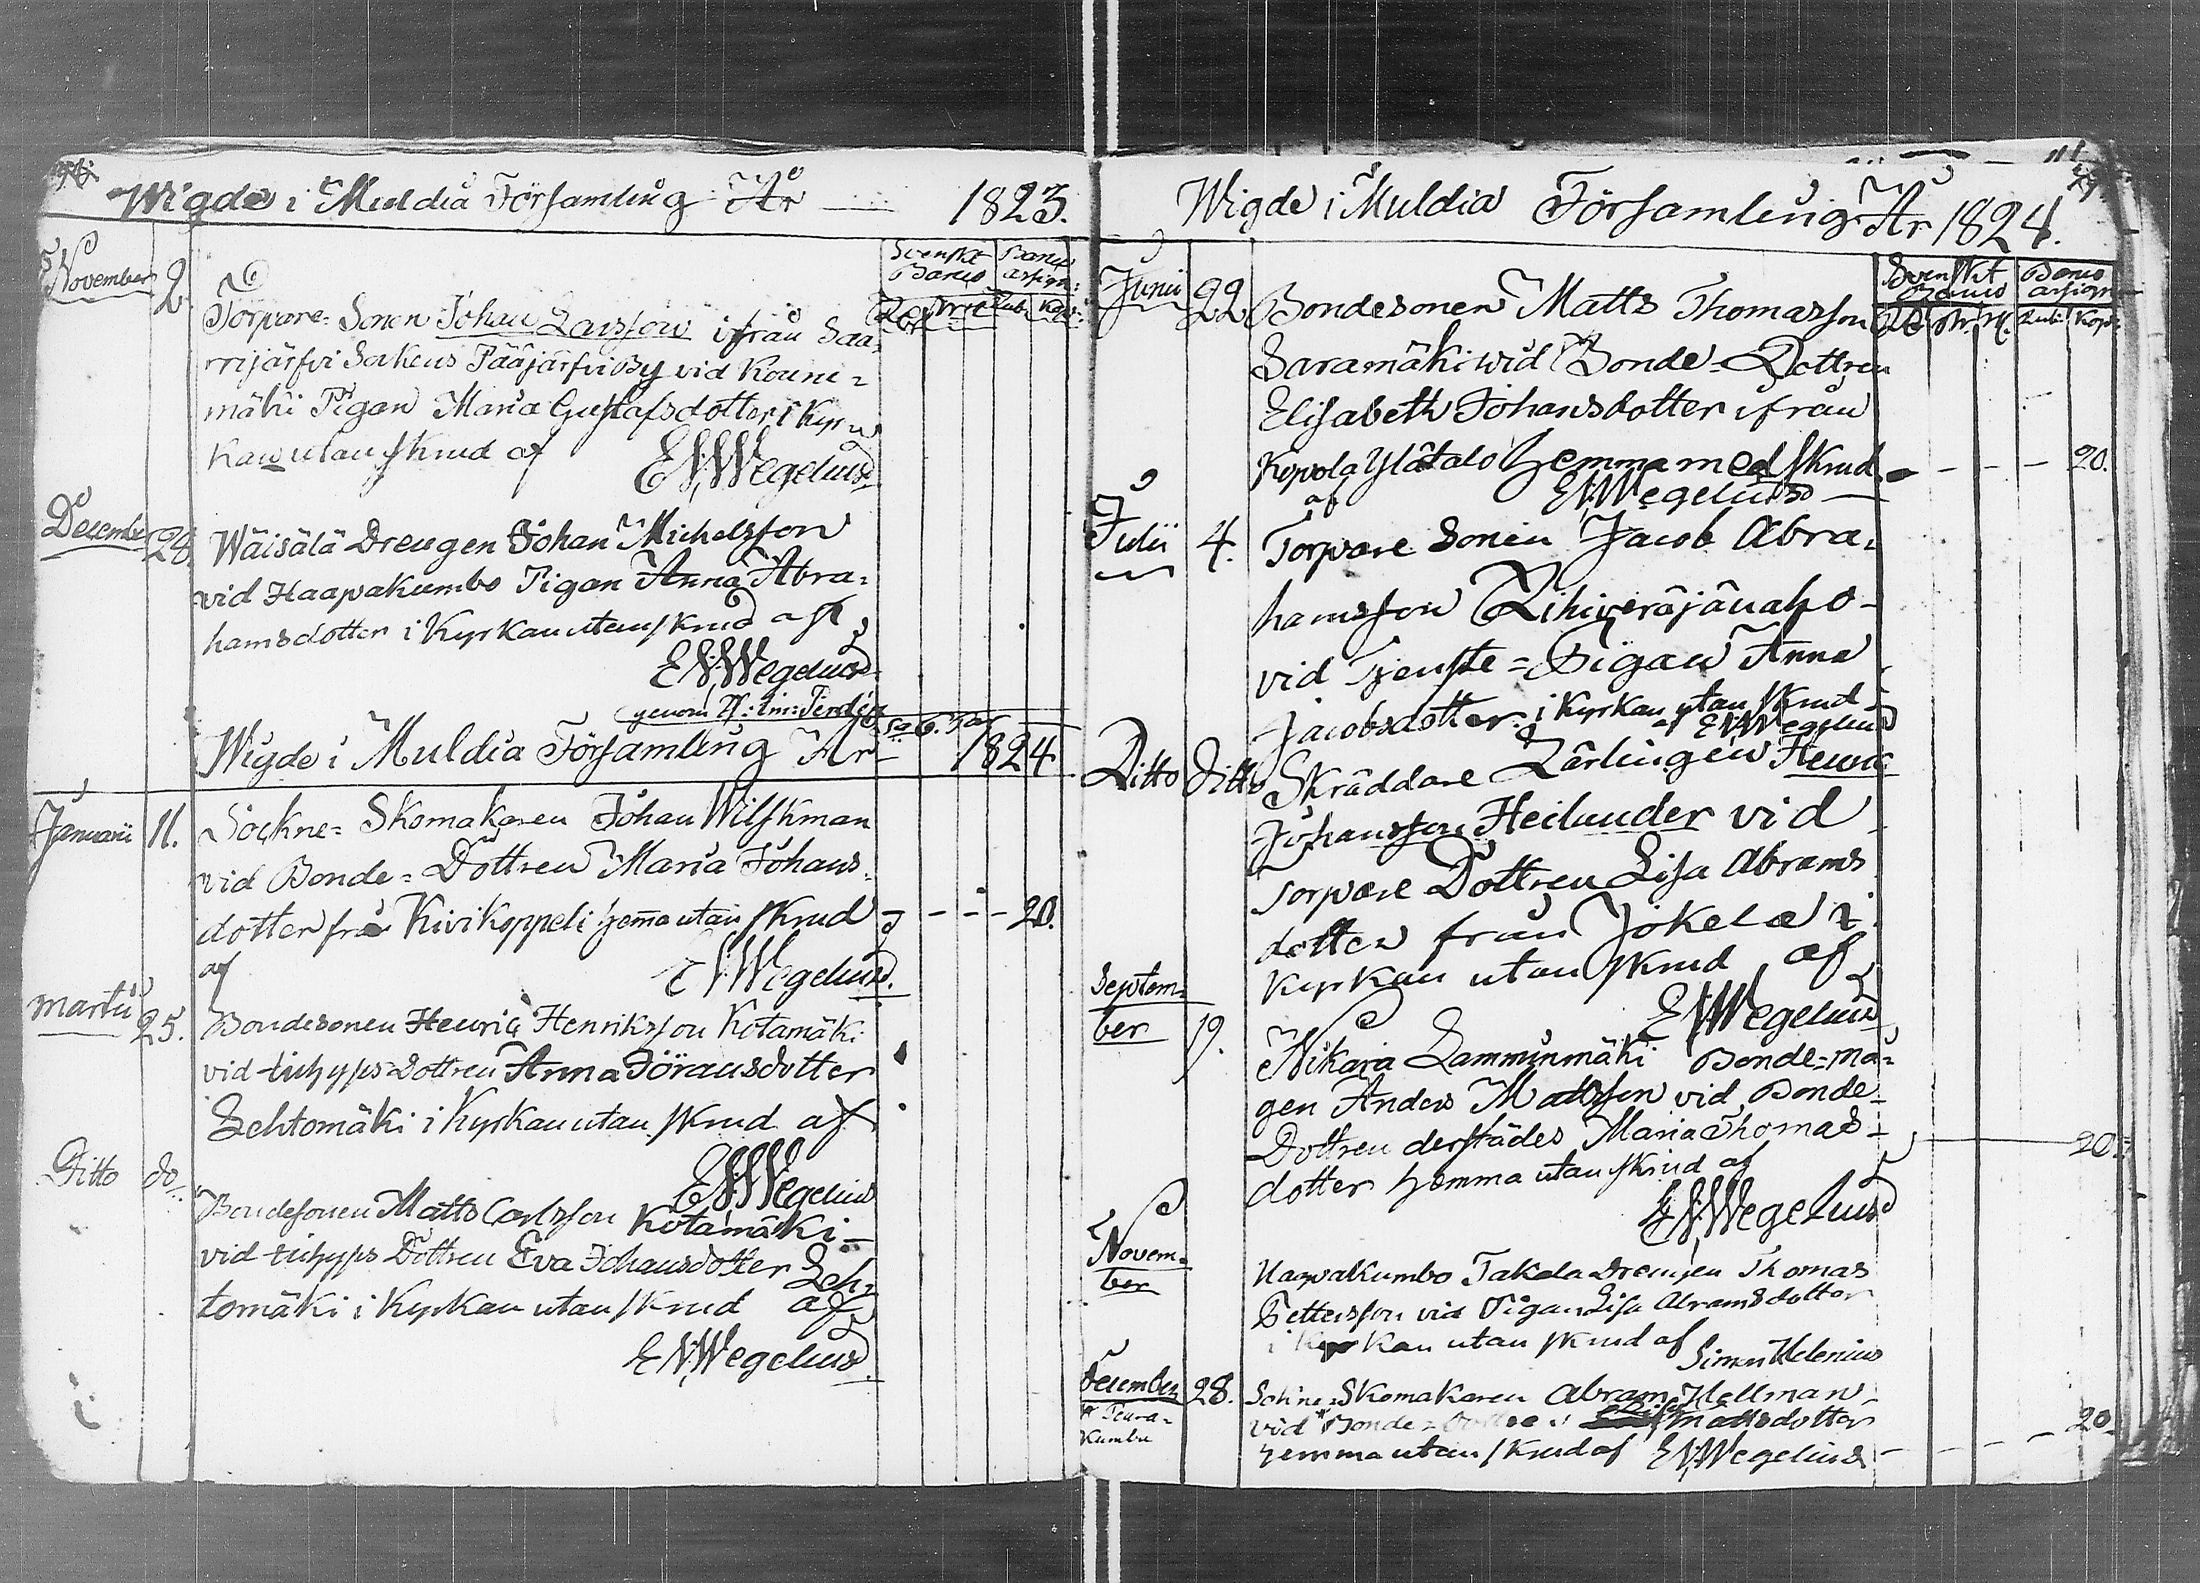 Wigde i Muldia Församling År 1823.
Svenskt Banco
Banco assign:
November 2.
Torpare-Sonen Johan Larsson ifrån Saa-
rijärfvi Sockens Pääjärfvi By vid Kouni-
mäki Pigan Maria Gustafsdotter i Kyr-
kan utan skrud af
E N Wegelius
December 28.
Wäisälä Drengen Johan Michelsson
vid Haapakumbo Pigan Anna Abra-
hamsdotter i Kyrkan utan skrud af
E N Wegelius
genom
Wigde i Muldia Församling År 1824
Januarii 11.
Sockne-Skomakaren Johan Wilskman
vid Bonde-Dottren Maria Johans-
dotter från Kivikoppeli hemma utan skrud - - - - 20.
af
E N Wegelius.
Martii 25.
Bondesonen Henric Henriksson Kotamäki
vid Dottren Anna Göransdotter
Lehtomäki i Kyrkan utan skrud af
E N Wegelius
Ditto do.
Bondesonen Matts Carlsson Kotamäki
vid Dottren Eva Johansdotter Leh-
tomäki i Kyrkan utan skrud af
E N Wegelius.
Wigde i Muldia Församling År 1824.
Svenskt Banco
Banco assign
Rub: Kop:
Junii 22
Bondesonen Matts Thomasson
Saramäki wid Bonde-Dottren
Elisabeth Johansdotter ifrån
Kopola Ylätalo hemma med skrud - - - - 20.
af E N Wegelius
Julii 4.
Torpare Sonen Jacob Abra-
hamsson
vid Tjenste-Pigan Anna
Jacobsdotter i Kyrkan utan skrud
af E N Wegelius
Ditto Ditto
Skräddare Lärlingen Henric
Johansson Heilander vid
Torpare Dottren Lisa Abrams
dotter från Jokela i
Kyrkan utan skrud af
E N Wegelius
Septem-
ber 19.
Nikara Lamminmäki Bonde-må-
gen Anders Mattsson vid Bonde-
Dottren derstädes Maria Thomas-
dotter hemma utan skrud af 20.
E N Wegelius
Novem-
ber
Haapakumbo Takala Drengen Thomas
Pettersson vid Pigan Lisa Abramsdotter
i Kyrkan utan skrud af
Simon Helenius
December 28.
Sokne-Skomakaren Abram Hellman
* Peura-
kumbu
vid * Bonde-Dottren Lisa Mattsdotter
hemma utan skrud af E N Wegelius - - - - 20